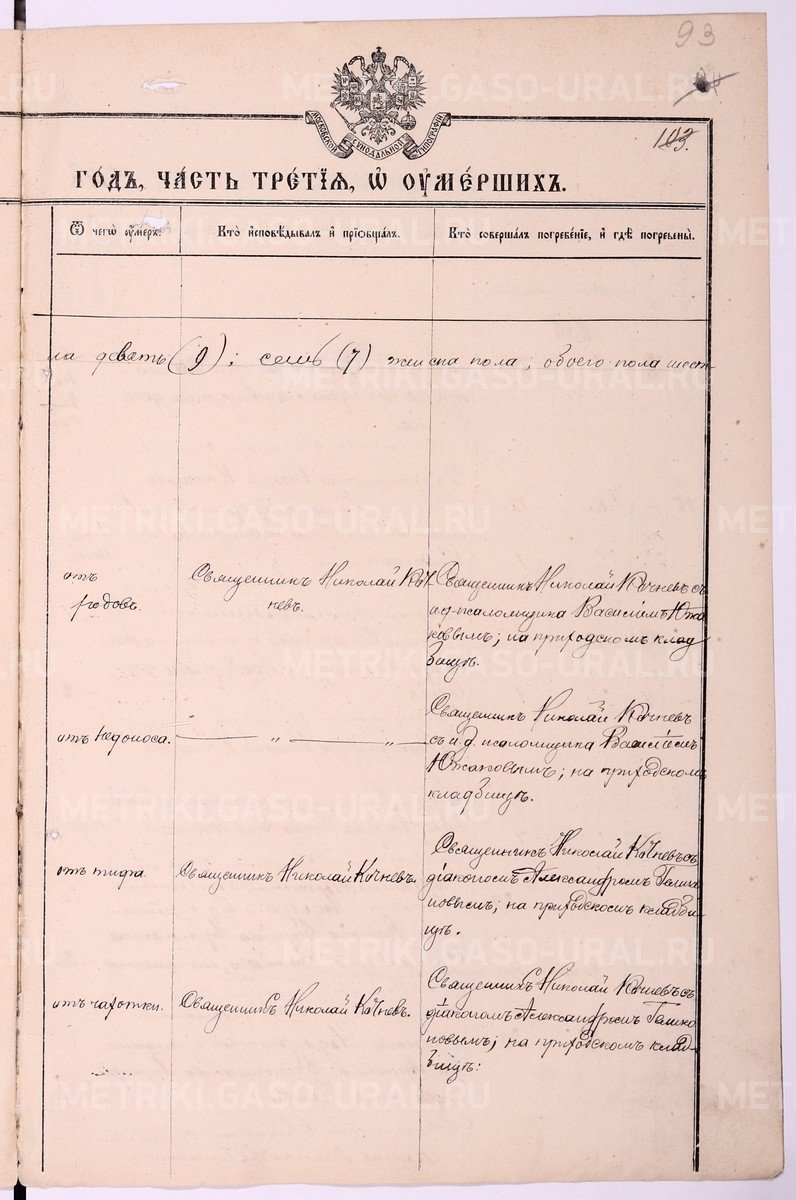 93
103.
МОСКОВСКОЙ СѴНОДАЛЬНОЙ ТИПОГРАФІИ
ГО́ДЪ, ЧА́СТЬ ТРЕ́ТІЯ, Ѡ ОУМЕ́РШИХЪ.
Ѿ чегѡ̀ оу́меръ.
Кто̀ и҆сповѣ́дывалъ и҆ прїѡбща́лъ.
Кто̀ соверша́лъ погребе́нїе, и҆ гдѣ̀ погребены̀.
ла девять (9); семь (7) женска пола; обоего пола шест-
отъ
родовъ.
Священникъ Николай Коч-
невъ.
Священникъ Николай Кочневъ съ
и. д. псаломщика Василіемъ Южа
ковымъ; на приходскомъ клад
бищѣ.
отъ недоноса.
— " — " —
Священникъ Николай Кочневъ
съ и. д. псаломщика Василіемъ
Южаковымъ; на приходскомъ
кладбищѣ.
отъ тифа.
Священникъ Николай Кочневъ.
Священникъ Николай Кочневъ съ
діакономъ Александромъ
новымъ; на приходскомъ кладби
щѣ.
отъ чахотки.
Священникъ Николай Кочневъ.
Священникъ Николай Кочневъ съ
діакономъ Александромъ
новымъ; на приходскомъ клад-
бищѣ.
METRIKI.GASO-URAL.RU